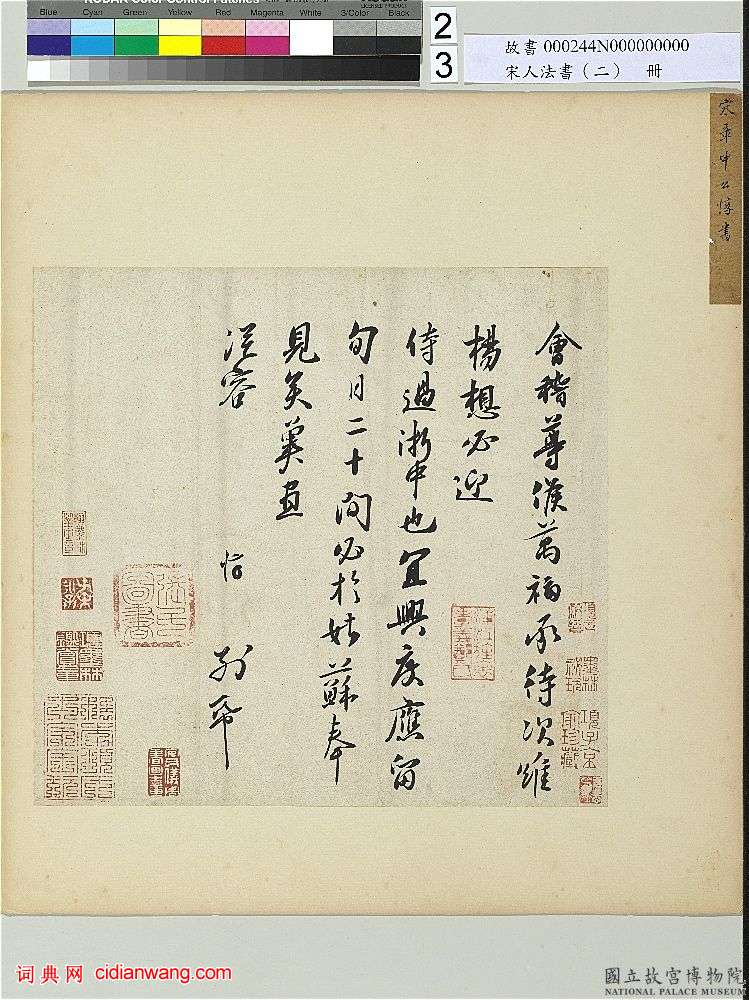 KODAK Color Control Patches
Blue Cyan Green Yellow Red Magenta White 3/Color Black
2
3
故書 000244N000000000
宋人法書（二） 冊
宋章申公惇書
會稽尊候萬福承待次維
楊想必迎
侍過浙中也宜興度應留
旬日二十間必於姑蘇奉
見矣冀
從容
惇 别帋
項子京
家珍藏
墨林
張氏
圖書
词典网 cidianwang.com
國立故宮博物院
NATIONAL PALACE MUSEUM